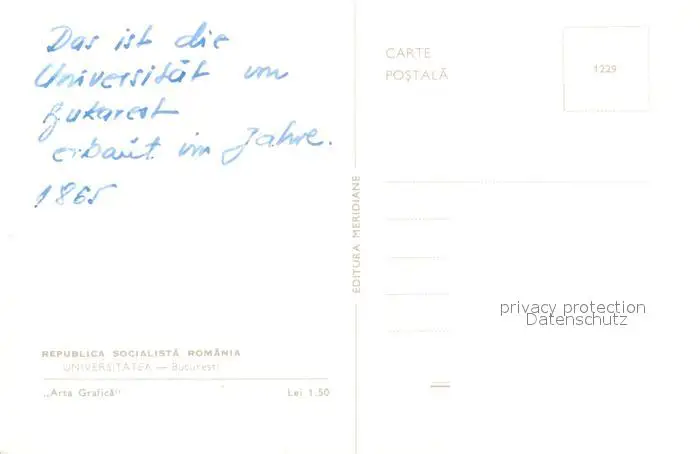 Das ist die
Universität von
Bukarest
erbaut im Jahre.
1865
REPUBLICA SOCIALISTĂ ROMÂNIA
UNIVERSITATEA — București
„Arta Grafică" Lei 1.50
EDITURA MERIDIANE
CARTE
POȘTALĂ
1229
privacy protection
Datenschutz